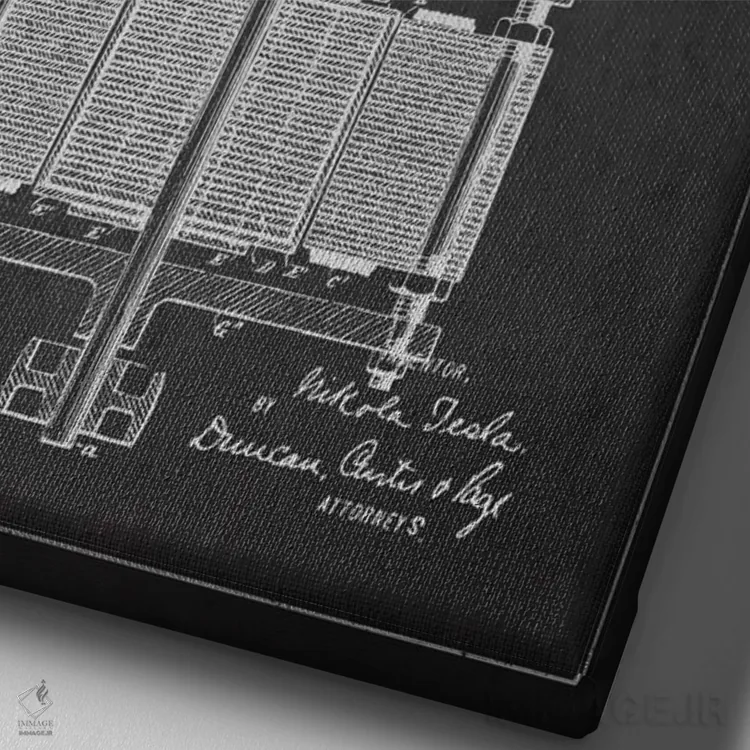 E'
E' D E' C
G"
a
NTOR.
Nikola Tesla.
BY
Duncan, Curtis & Page
ATTORNEYS.
IMMAGE
IMMAGE.IR
IMMAGE.IR